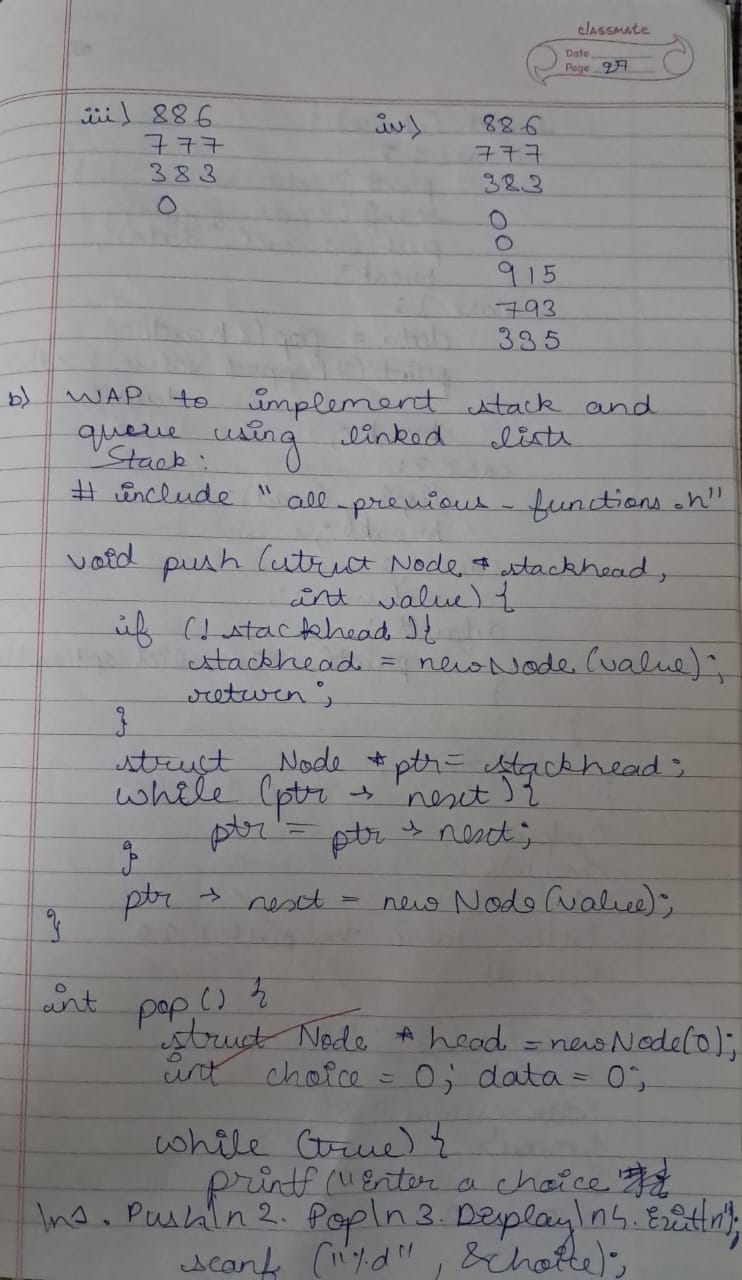 classmate
Date
Page 27
iii) 886
777
383
0
iv) 886
777
383
0
0
915
793
335
b) WAP to implement stack and
queue using linked lists
Stack:
# include "all-previous-functions.h"
void push (struct Node * stackhead,
int value) {
if (! stackhead) {
stackhead = newNode (value);
return;
}
struct Node *ptr = stackhead;
while (ptr → next) {
ptr = ptr → next;
}
ptr → next = newNode (value);
}
int pop () {
struct Node * head = newNode(0);
int choice = 0; data = 0;
while (true) {
printf ("Enter a choice
\n1. Push\n 2. Pop\n 3. Display\n4. Exit\n");
scanf ("%d", &choice);